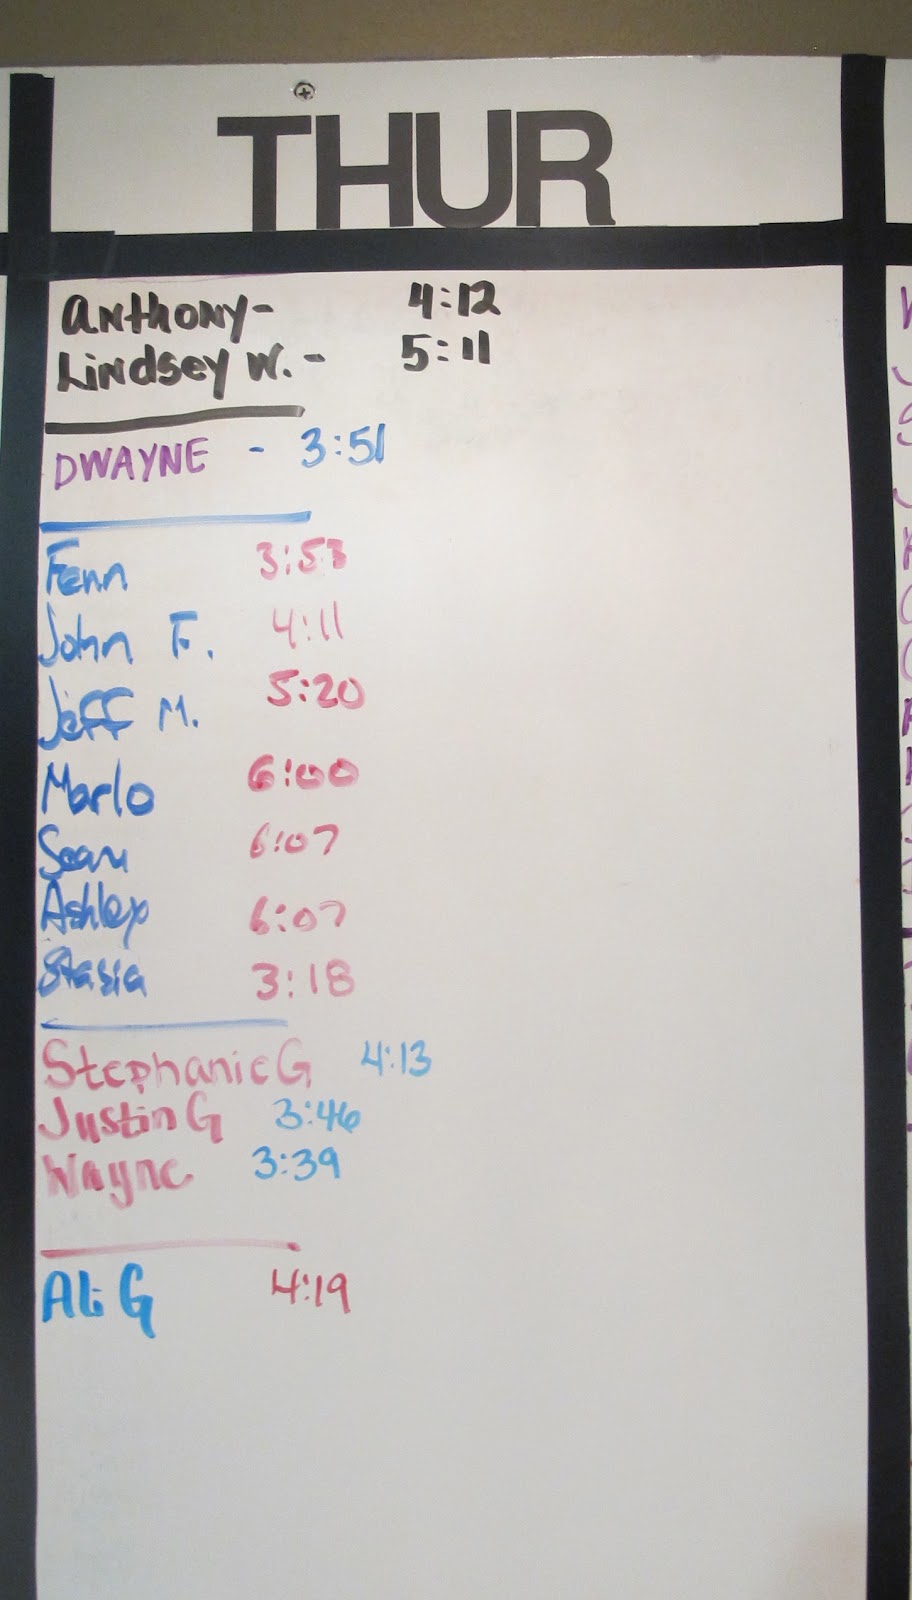 THUR
Anthony- 4:12
Lindsey W.- 5:11
DWAYNE - 3:51
Fenn 3:53
John F. 4:11
Jeff M. 5:20
Marlo 6:00
Sean 6:07
Ashley 6:07
Stasia 3:18
Stephanie G 4:13
Justin G 3:46
Wayne 3:39
Ali G 4:19